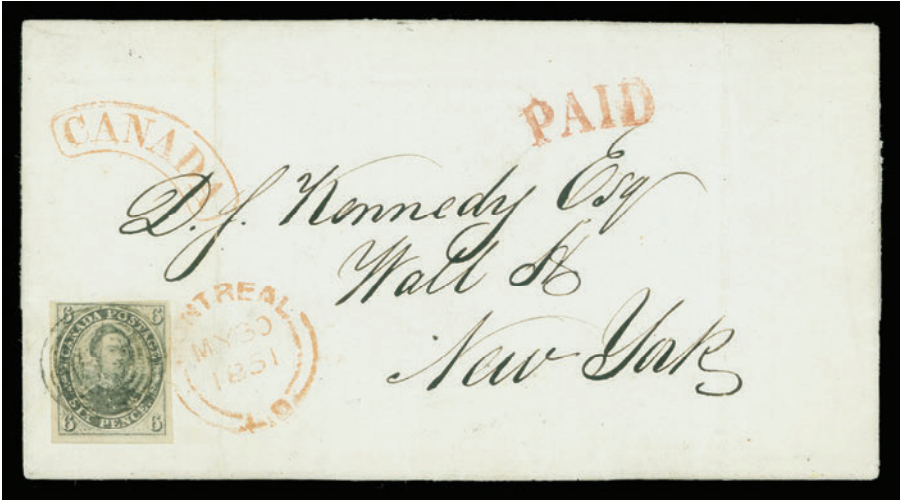 PAID
CANADA
D. J. Kennedy Esq
Wall St
New York
MONTREAL
MY 30
1851
L.C.
6 6
CANADA POSTAGE
SIX PENCE.
6 6